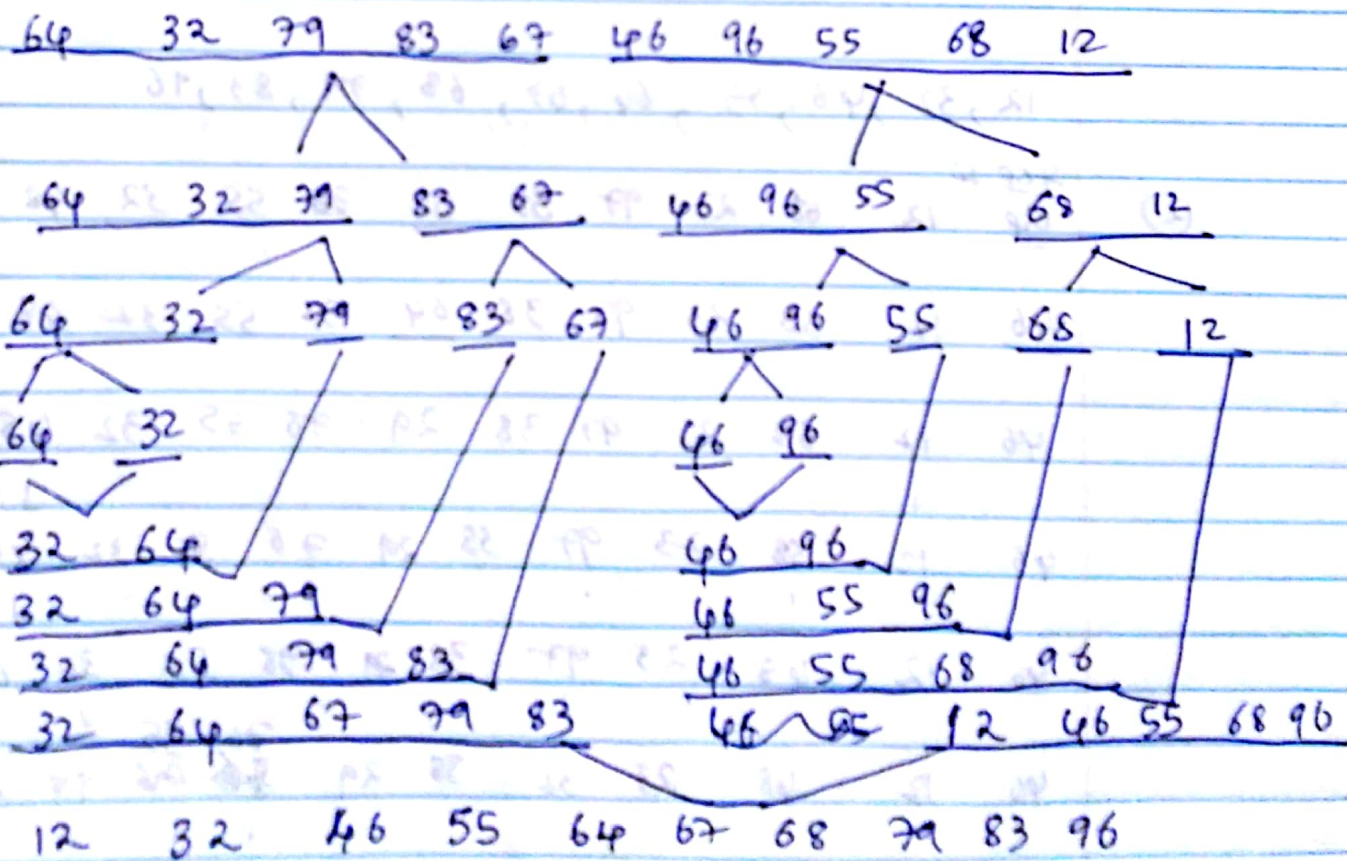 64 32 79 83 67 46 96 55 68 12
64 32 79 83 67 46 96 55 68 12
64 32 79 83 67 46 96 55 68 12
64 32 46 96
32 64 46 96
32 64 79 46 55 96
32 64 79 83 46 55 68 96
32 64 67 79 83 46 55 12 46 55 68 96
12 32 46 55 64 67 68 79 83 96